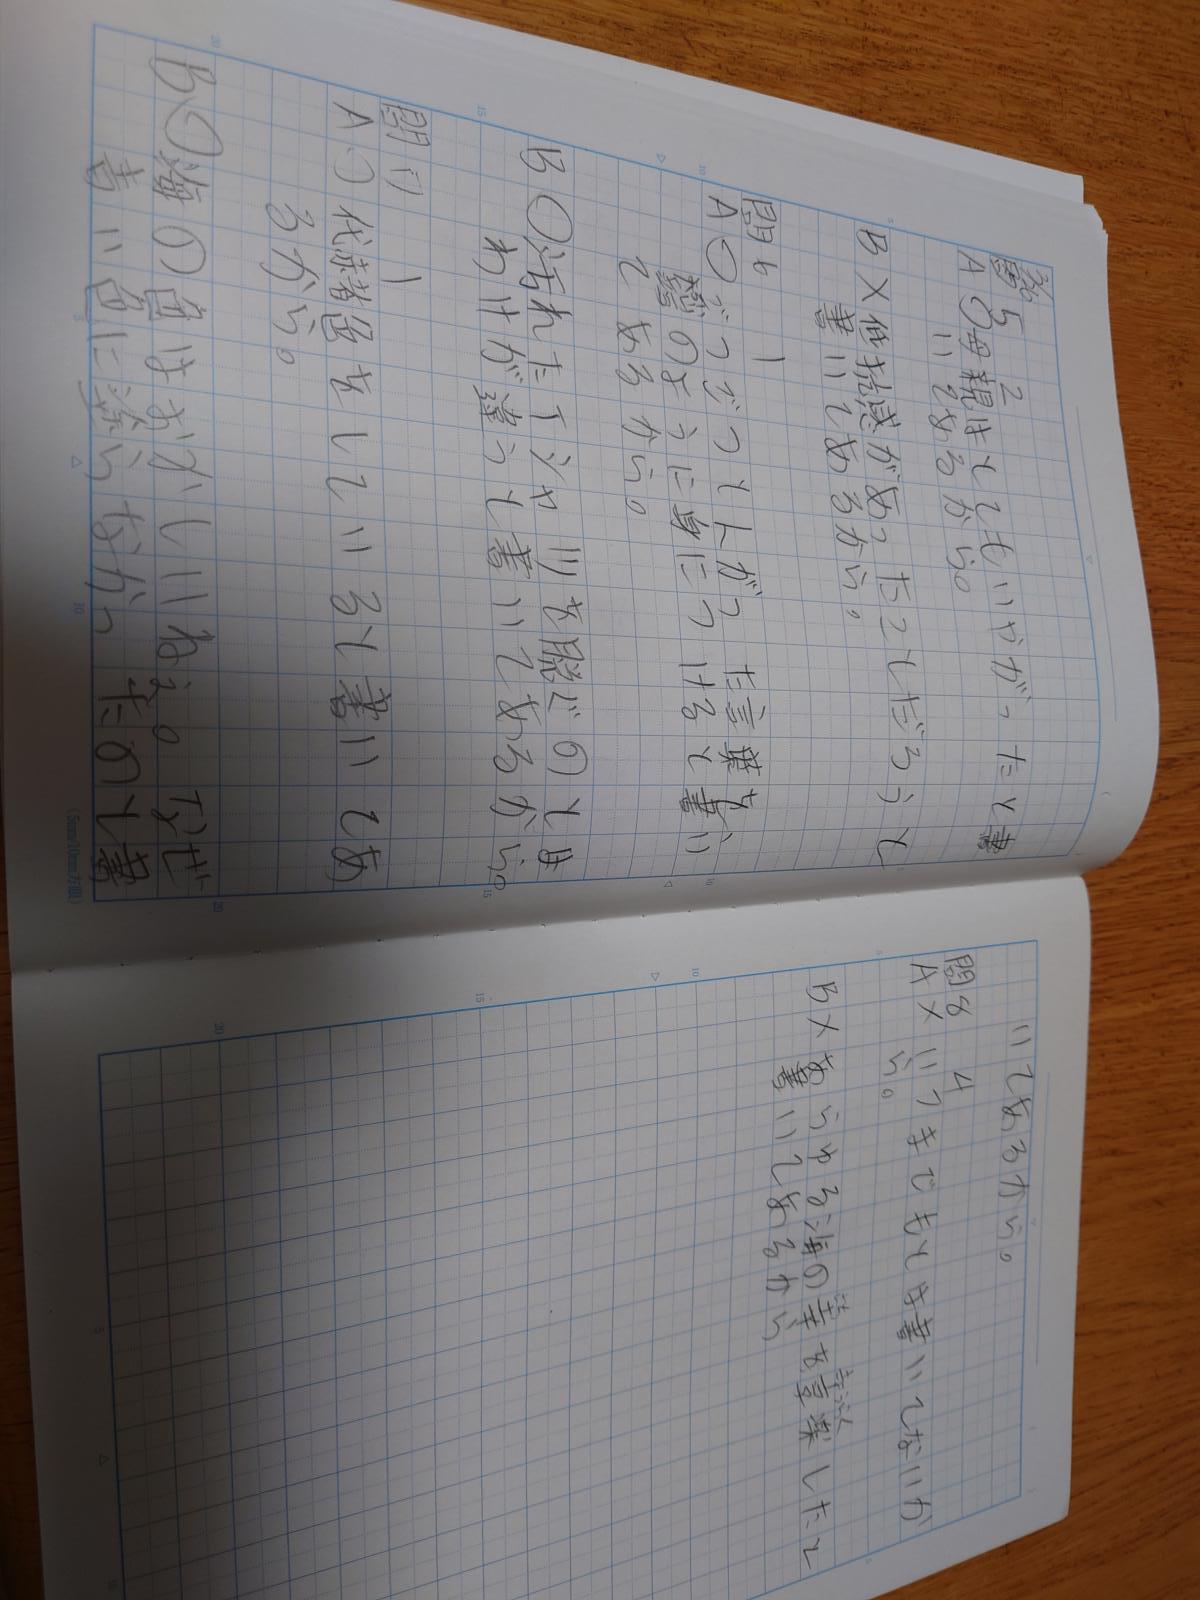 問5 2
A○母親はとてもいやがったと書
いてあるから。
B×抵抗感があったことだろうと
書いてあるから。
問6 1
A○ごつごつトがっ た言葉を、
鎧のように身につけると書い
てあるから。
B○汚れたTシャツを脱ぐのとは
わけが違うと書いてあるから。
問7 1
A○代赭色をしていると書いてあ
るから。
B○海の色はおかしいねえ。なぜ
青い色に塗らなかったのと書
いてあるから。
問8 4
A×いつまでもとは書いてないか
ら。
B×あらゆる海の幸を享楽したと
書いてあるから